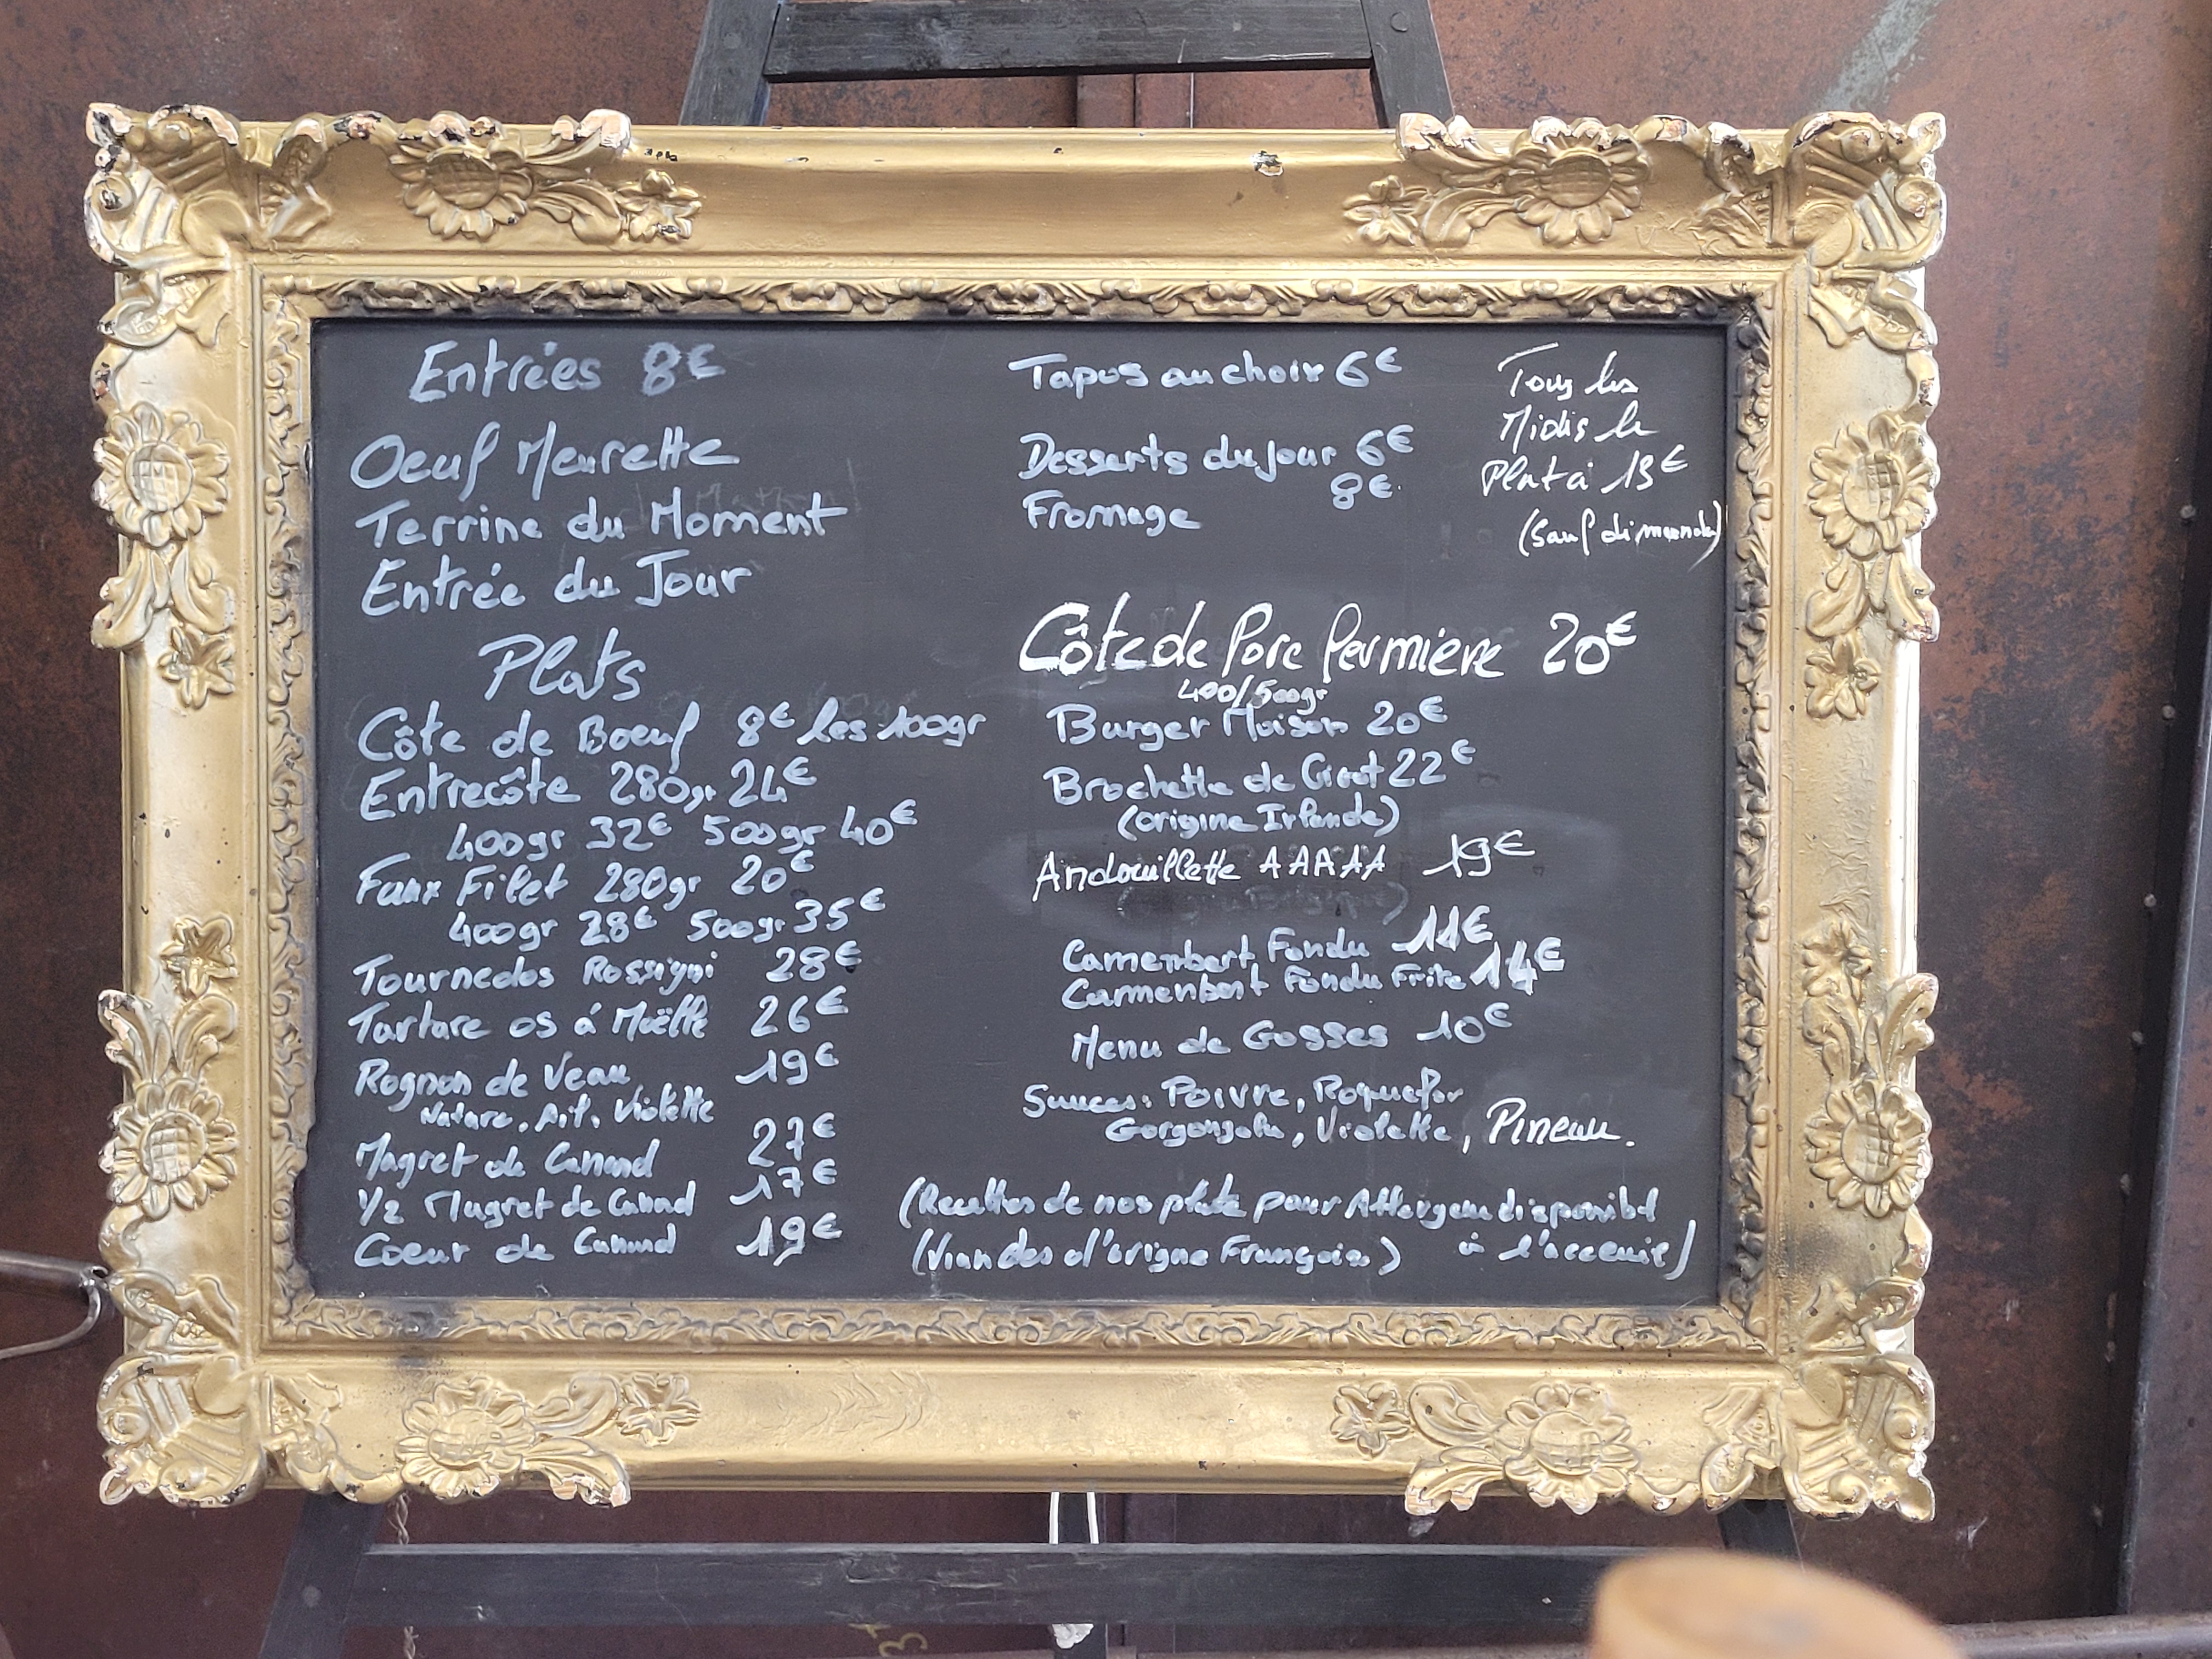 Entrées 8€
Oeuf Meurette
Terrine du Moment
Entrée du Jour
Plats
Côte de Boeuf 8€ les 100gr
Entrecôte 280gr 24€
400gr 32€ 500gr 40€
Faux Filet 280gr 20€
400gr 28€ 500gr 35€
Tournedos Rossigni 28€
Tartare os á Moëlle 26€
Rognon de Veau 19€
Nature, Ail, Violette
Magret de Canard 27€
1/2 Magret de Canard 17€
Coeur de Canard 19€
Tapas au choix 6€
Desserts du jour 6€
Fromage 8€
Tous les
Midis le
Plat à 13€
(Sauf dimanche)
Côte de Porc fermière 20€
400/500gr
Burger Maison 20€
Brochette de Gigot 22€
(origine Irlande)
Andouillette AAAAA 19€
Camembert Fondu 11€
Camembert Fondu Frite 14€
Menu de Gosses 10€
Sauces: Poivre, Roquefor
Gorgonzola, Violette, Pineau.
(Recettes de nos plats pour Allergene disponibl
à l'acceuil)
(Viandes d'origne Française)